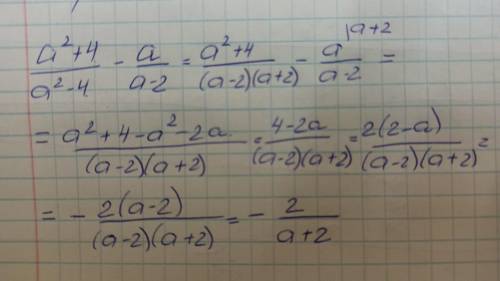 (a²+4)/(a²-4) - a/(a-2) = (a²+4)/((a-2)(a+2)) - a^{|a+2}/(a-2) =
= (a²+4-a²-2a)/((a-2)(a+2)) = (4-2a)/((a-2)(a+2)) = 2(2-a)/((a-2)(a+2)) =
= - 2(a-2)/((a-2)(a+2)) = - 2/(a+2)